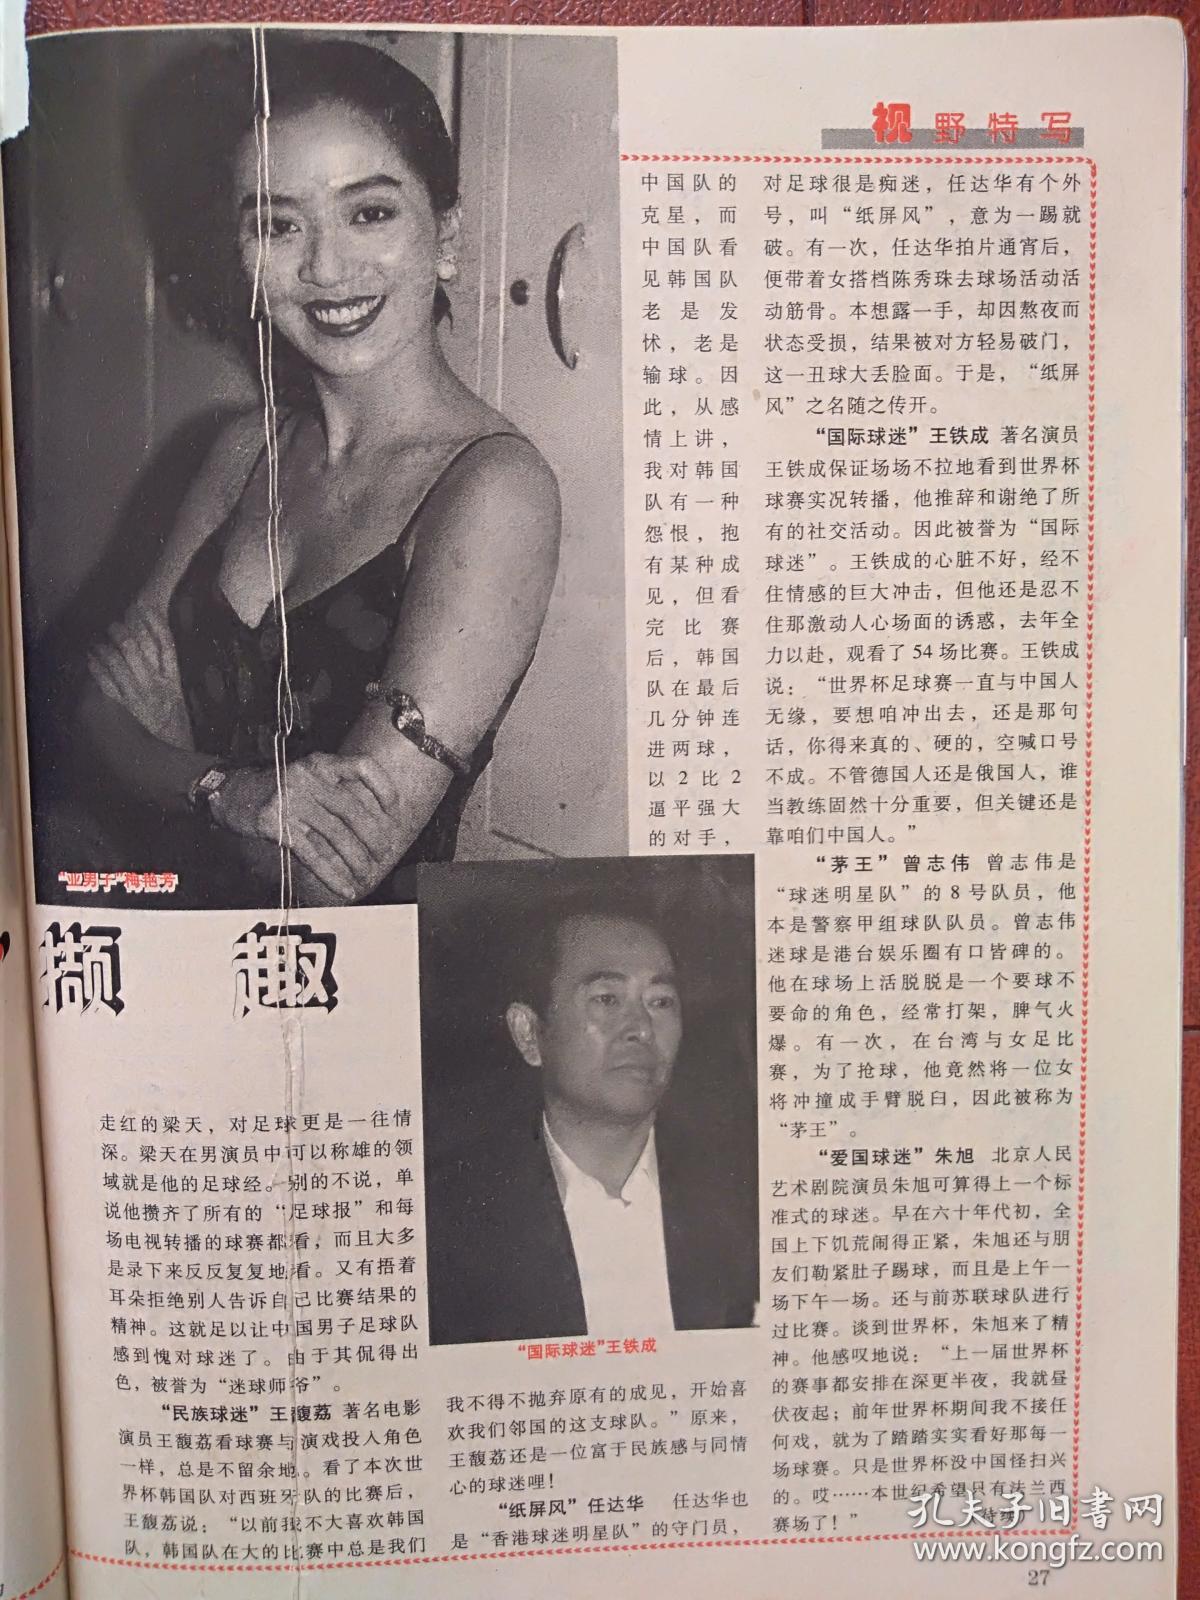 视野特写
“亚男子”梅艳芳
撷趣
走红的梁天，对足球更是一往情
深。梁天在男演员中可以称雄的领
域就是他的足球经。别的不说，单
说他攒齐了所有的“足球报”和每
场电视转播的球赛都看，而且大多
是录下来反反复复地看。又有捂着
耳朵拒绝别人告诉自己比赛结果的
精神。这就足以让中国男子足球队
感到愧对球迷了。由于其侃得出
色，被誉为“迷球师爷”。
“民族球迷”王馥荔 著名电影
演员王馥荔看球赛与演戏投入角色
一样，总是不留余地。看了本次世
界杯韩国队对西班牙队的比赛后，
王馥荔说：“以前我不大喜欢韩国
队，韩国队在大的比赛中总是我们
中国队的
克星，而
中国队看
见韩国队
老是发
怵，老是
输球。因
此，从感
情上讲，
我对韩国
队有一种
怨恨，抱
有某种成
见，但看
完比赛
后，韩国
队在最后
几分钟连
进两球，
以2比2
逼平强大
的对手，
“国际球迷”王铁成
我不得不抛弃原有的成见，开始喜
欢我们邻国的这支球队。”原来，
王馥荔还是一位富于民族感与同情
心的球迷哩！
“纸屏风”任达华 任达华也
是“香港球迷明星队”的守门员，
对足球很是痴迷，任达华有个外
号，叫“纸屏风”，意为一踢就
破。有一次，任达华拍片通宵后，
便带着女搭档陈秀珠去球场活动活
动筋骨。本想露一手，却因熬夜而
状态受损，结果被对方轻易破门，
这一丑球大丢脸面。于是，“纸屏
风”之名随之传开。
“国际球迷”王铁成 著名演员
王铁成保证场场不拉地看到世界杯
球赛实况转播，他推辞和谢绝了所
有的社交活动。因此被誉为“国际
球迷”。王铁成的心脏不好，经不
住情感的巨大冲击，但他还是忍不
住那激动人心场面的诱惑，去年全
力以赴，观看了54场比赛。王铁成
说：“世界杯足球赛一直与中国人
无缘，要想咱冲出去，还是那句
话，你得来真的、硬的，空喊口号
不成。不管德国人还是俄国人，谁
当教练固然十分重要，但关键还是
靠咱们中国人。”
“茅王”曾志伟 曾志伟是
“球迷明星队”的8号队员，他
本是警察甲组球队队员。曾志伟
迷球是港台娱乐圈有口皆碑的。
他在球场上活脱脱是一个要球不
要命的角色，经常打架，脾气火
爆。有一次，在台湾与女足比
赛，为了抢球，他竟然将一位女
将冲撞成手臂脱臼，因此被称为
“茅王”。
“爱国球迷”朱旭 北京人民
艺术剧院演员朱旭可算得上一个标
准式的球迷。早在六十年代初，全
国上下饥荒闹得正紧，朱旭还与朋
友们勒紧肚子踢球，而且是上午一
场下午一场。还与前苏联球队进行
过比赛。谈到世界杯，朱旭来了精
神。他感叹地说：“上一届世界杯
的赛事都安排在深更半夜，我就昼
伏夜起；前年世界杯期间我不接任
何戏，就为了踏踏实实看好那每一
场球赛。只是世界杯没中国怪扫兴
的。哎……本世纪希望只有法兰西
赛场了！”
27
孔夫子旧书网
www.kongfz.com